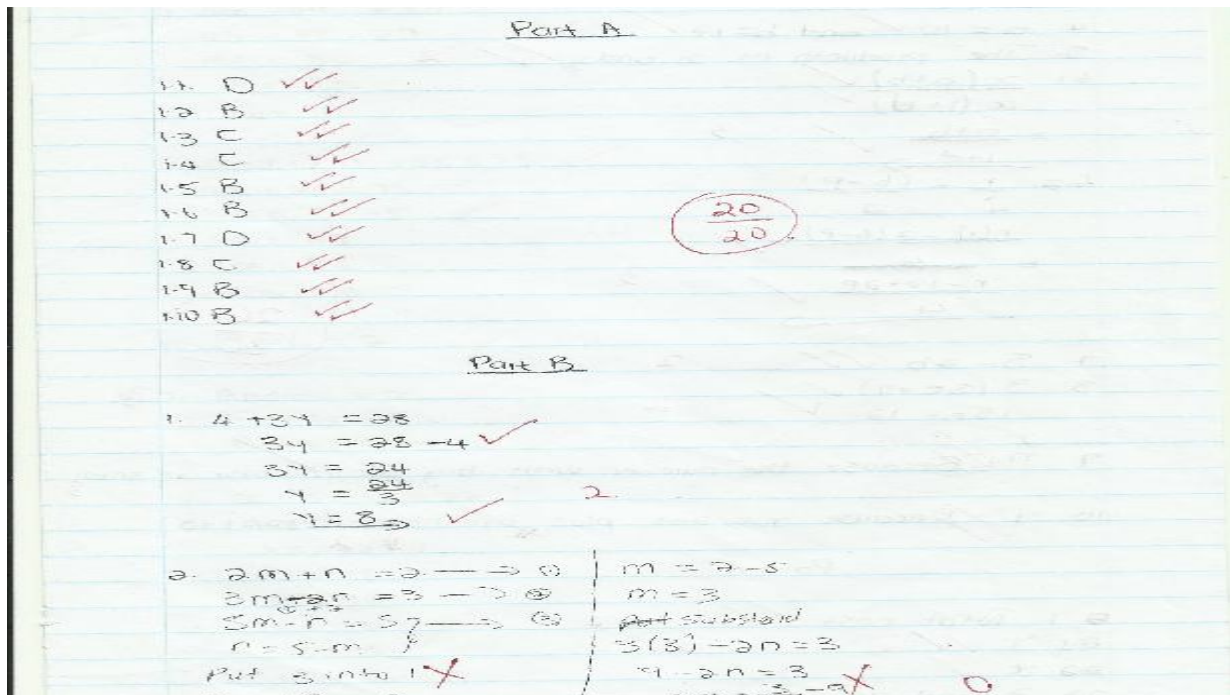 Part A
1.1. D
1.2 B
1.3 C
1.4 C
1.5 B
1.6 B
1.7 D
1.8 C
1.9 B
1.10 B
20
20
Part B
1. 4 + 3y = 28
3y = 28 - 4
3y = 24
y = 24/3
y = 8
2
2. 2m + n = 2
3m - 2n = 3
n = 5 - m
Put 3 into 1
m = 7 - 5
m = 3
3(3) - 2n = 3
9 - 2n = 3
3 - 9
0